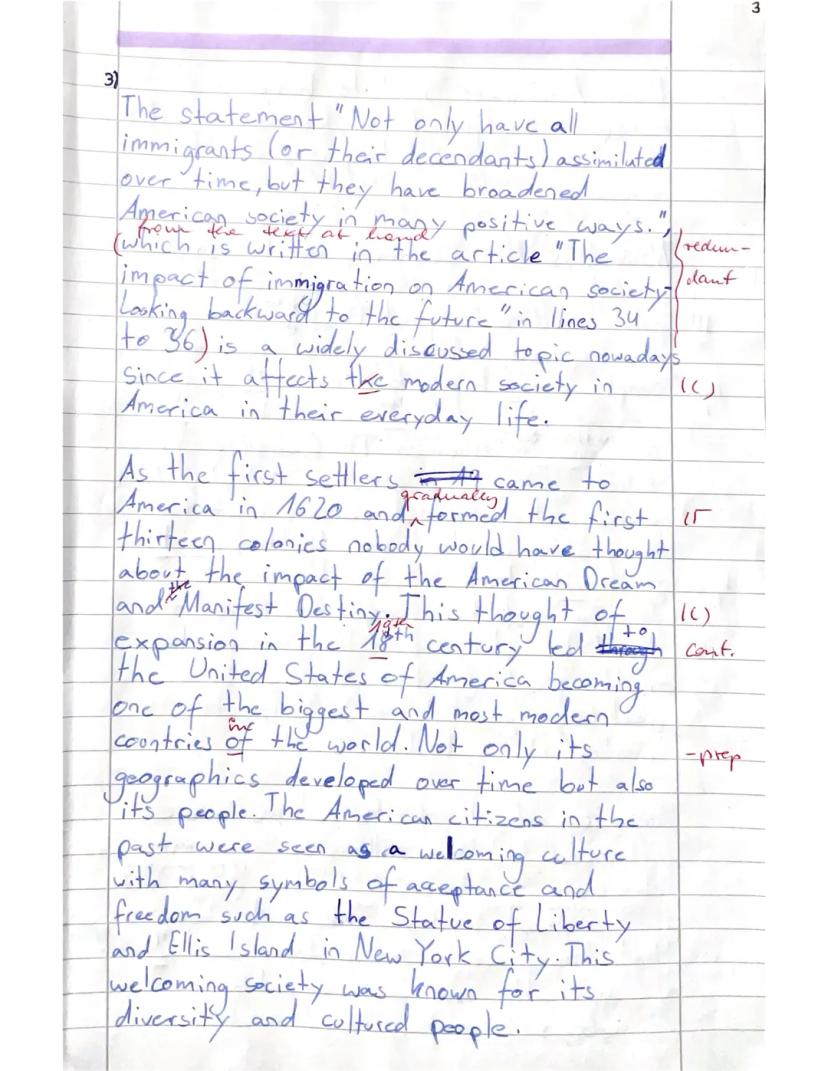 3
3)
The statement "Not only have all
immigrants (or their decendants) assimilated
over time, but they have broadened
American society in many positive ways.",
from the text at hand
(which is written in the article "The
redun-
impact of immigration on American society-
dant
Looking backward to the future" in lines 34
to 36) is a widely discussed topic nowadays
since it affects the modern society in
(C)
America in their everyday life.
As the first settlers came to
gradually
America in 1620 and formed the first
thirteen colonies nobody would have thought
about the impact of the American Dream
the
and Manifest Destiny. This thought of
(C)
19th to
expansion in the 18th century led through
cont.
the United States of America becoming
one of the biggest and most modern
in
countries of the world. Not only its
-prep
geographics developed over time but also
its people. The American citizens in the
past were seen as a welcoming culture
with many symbols of acceptance and
freedom such as the Statue of Liberty
and Ellis Island in New York City. This
welcoming society was known for its
diversity and cultured people.